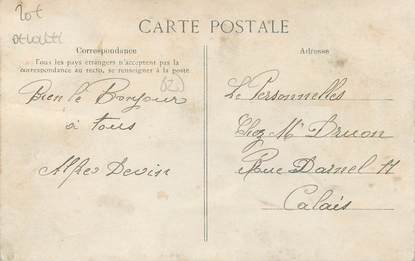 CARTE POSTALE
Correspondance
Tous les pays étrangers n'acceptent pas la
correspondance au recto, se renseigner à la poste
Bien le Bonjour
à tous
Alfred Devin
Adresse
Le Personnelles
Chez Mr Druon
Rue Darnel 11
Calais